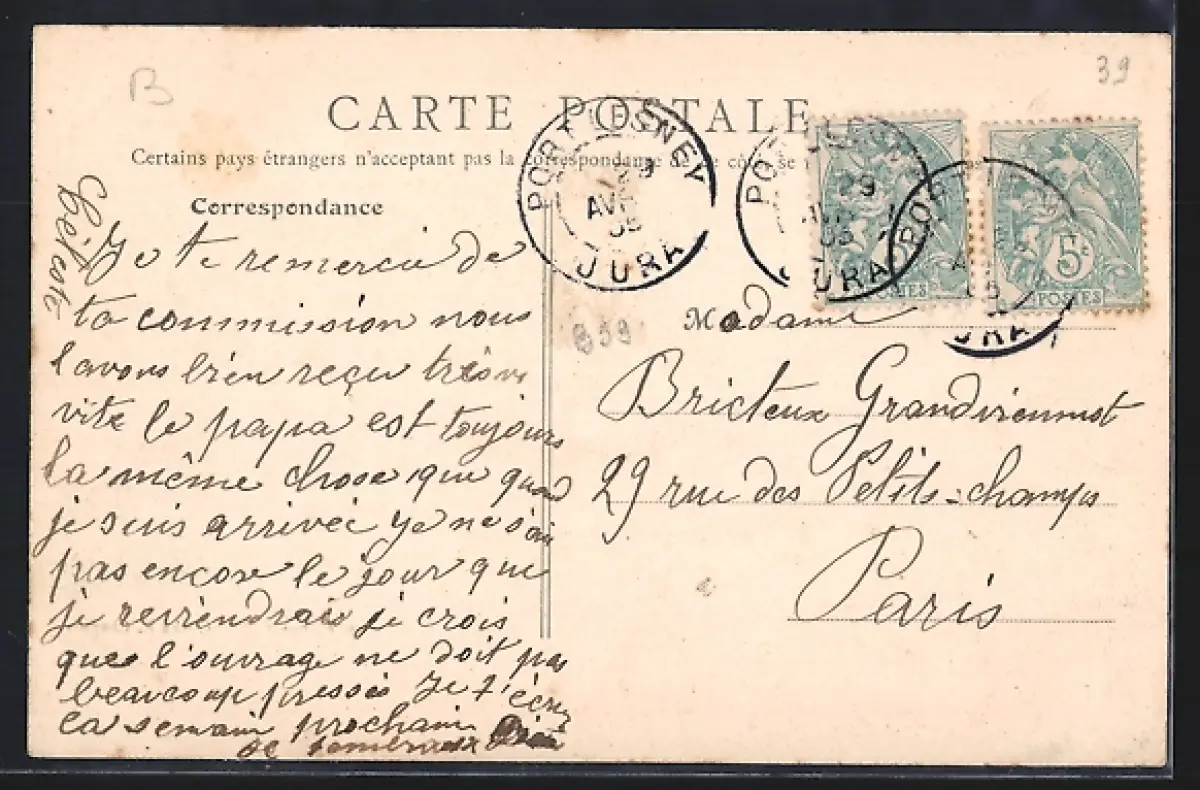 B
39
CARTE POSTALE
Certains pays étrangers n'acceptant pas la correspondance de ce côté se
Correspondance
PORT LESNEY
29
AVR
05
JURA
29
AVR
05
URA
5c
POSTES
POSTES
859
Céleste
Je te remercie de
ta commission nous
lavons bien reçu très
vite le papa est toujours
la même chose que quand
je suis arrivée je ne sai
pas encore le jour que
je reviendrais je crois
que l'ouvrage ne doit pas
beaucoup pressée Je t'écri
la semain prochain
de
Madame
Bricteux Grandvienmot
29 rue des Petits-champs
Paris